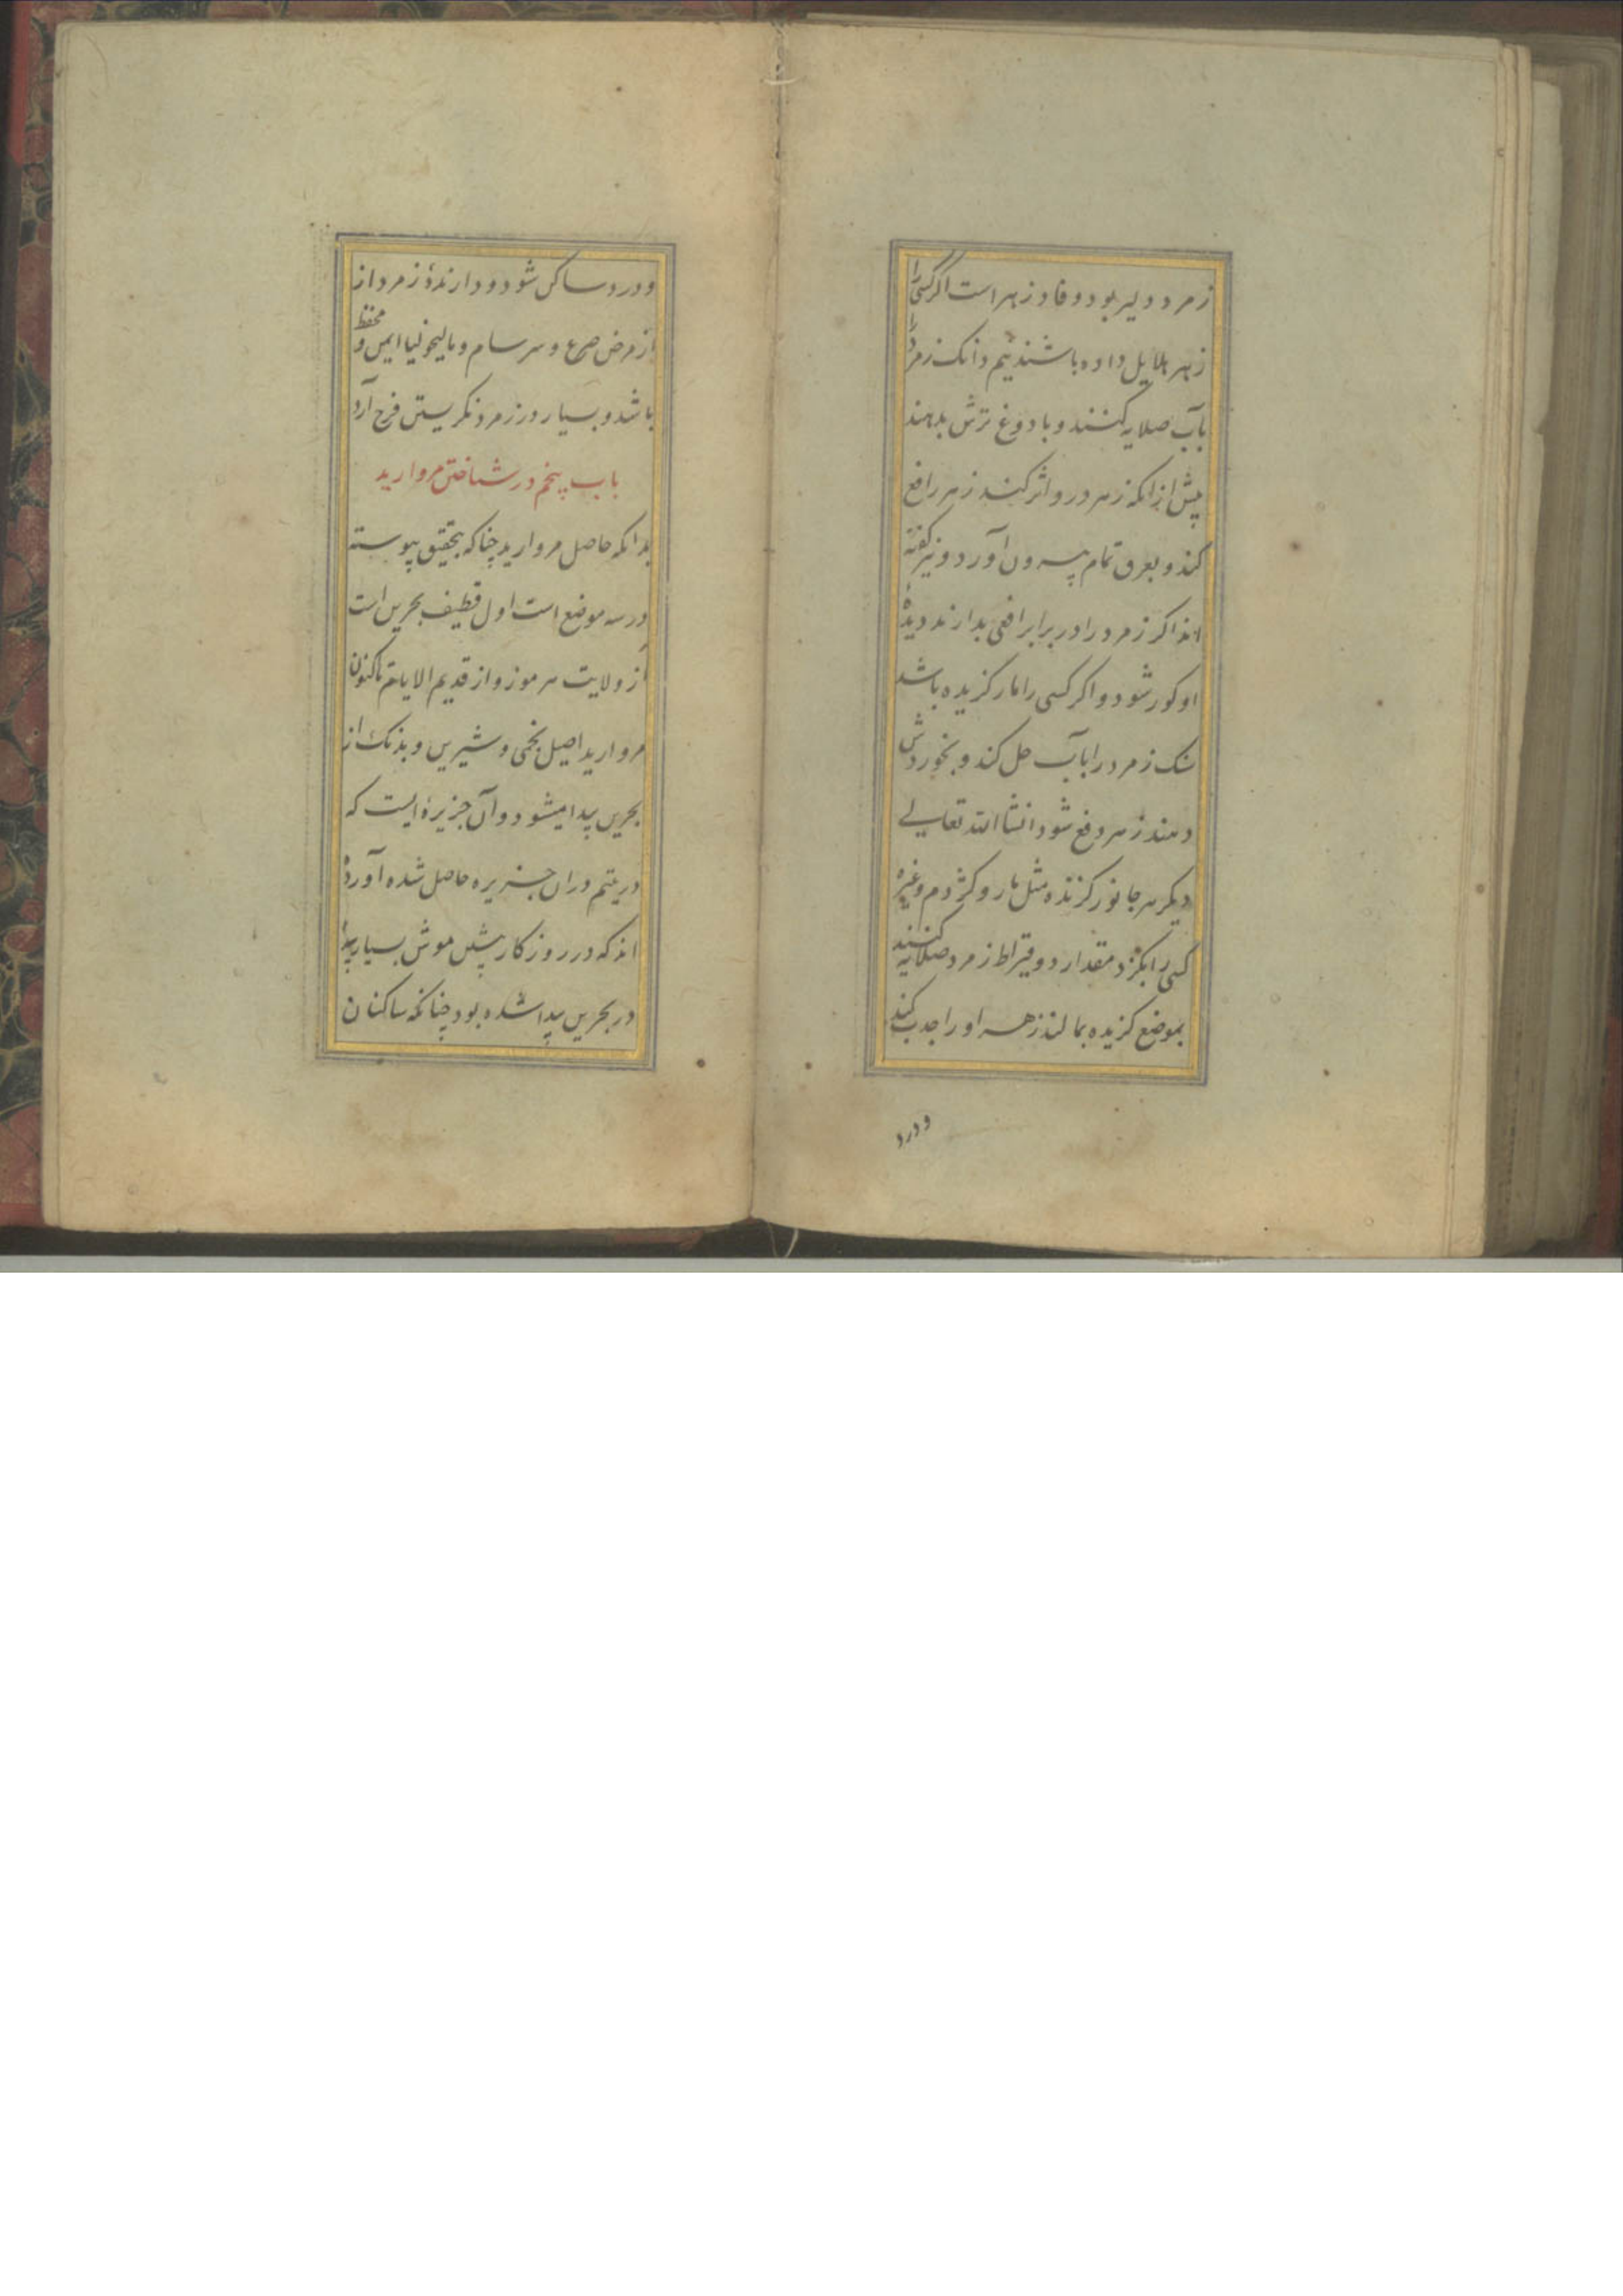 زمرد دلیر بود و فادزهر است اکر کسی را
زهر هلایل داده باشند نیم دانک زمرد را
بآب صلایه کنند و با دوغ ترش بدهند
پیش از انکه زهر درو اثر کند زهر را فع
کند و بعرق تمام بیرون آورد و نیز کفته
اند اکر زمرد را در برابر افعی بدارند دیدهٔ
او کور شود و اکر کسی را مار کزیده باشد
سنک زمرد را بآب حل کند و بخوردش
دهند زهر دفع شود انشاالله تعالی
دیکر هر جانور کزنده مثل مار و کژدم و غیره
کسی را بکزد مقدار دو قیراط زمرد صلایه کنند
بموضع کزیده بمالند زهر او را جدب کند
و درد
و درد ساکن شود و دارندهٔ زمرد از
از مرض صرع و سرسام و مالیخولیا ایمن و محفظ
باشد و بسیار در زمرد نکریستن فرح آرد
باب پنجم در شناختن مروارید
بدانکه حاصل مروارید چناکه بتحقیق پیوسته
در سه موضع است اول قطیف بحرین است
از ولایت هرموز و از قدیم الایام تاکنون
مروارید اصیل نجمی و شیرین و بذنک از
بحرین پیدا میشود و آن جزیره ایست که
در یتیم دران جزیره حاصل شده آورده
اند که در روزکار پیشین موش بسیار پیدا
در بحرین پیدا شده بود چنانکه ساکنان